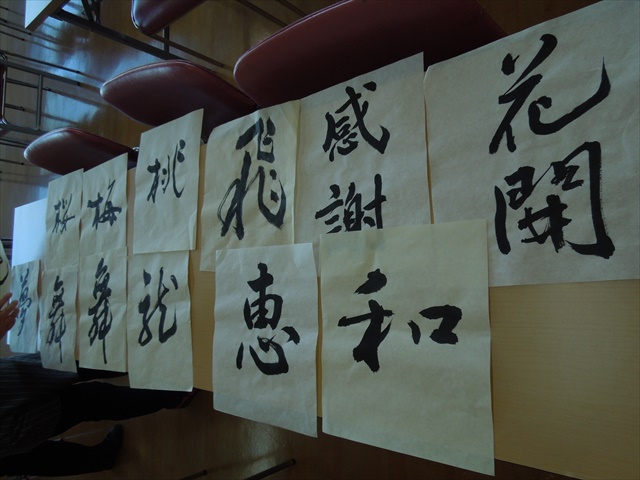 花開
感謝
飛
桃
梅
桜
和
恵
龍
舞
舞
夢